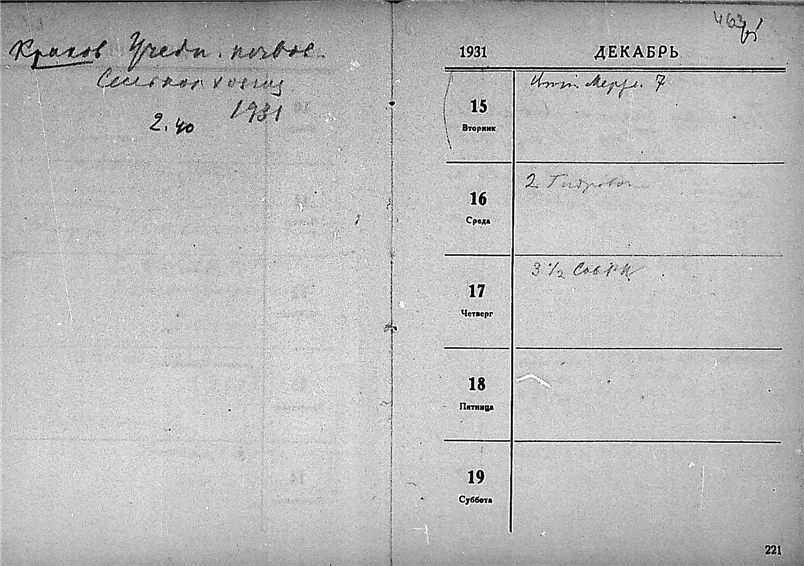 Краков Учебн. почвов.
Сельхоз
1931
2.40
463
1931 ДЕКАБРЬ
15
Вторник
7
16
Среда
2 Гидролог
17
Четверг
3 1/2
18
Пятница
19
Суббота
221